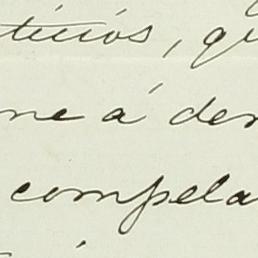 ticios, qu
ne á der
compela